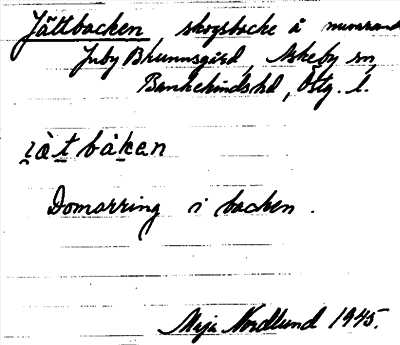 Jättbacken, skogsbacke å nuvarande
Juby Brunnsgård, Askeby sn,
Bankekindshd, Östg. l.
i̯ätbàkɐn
Domarring i backen.
Maja Nordlund 1945.